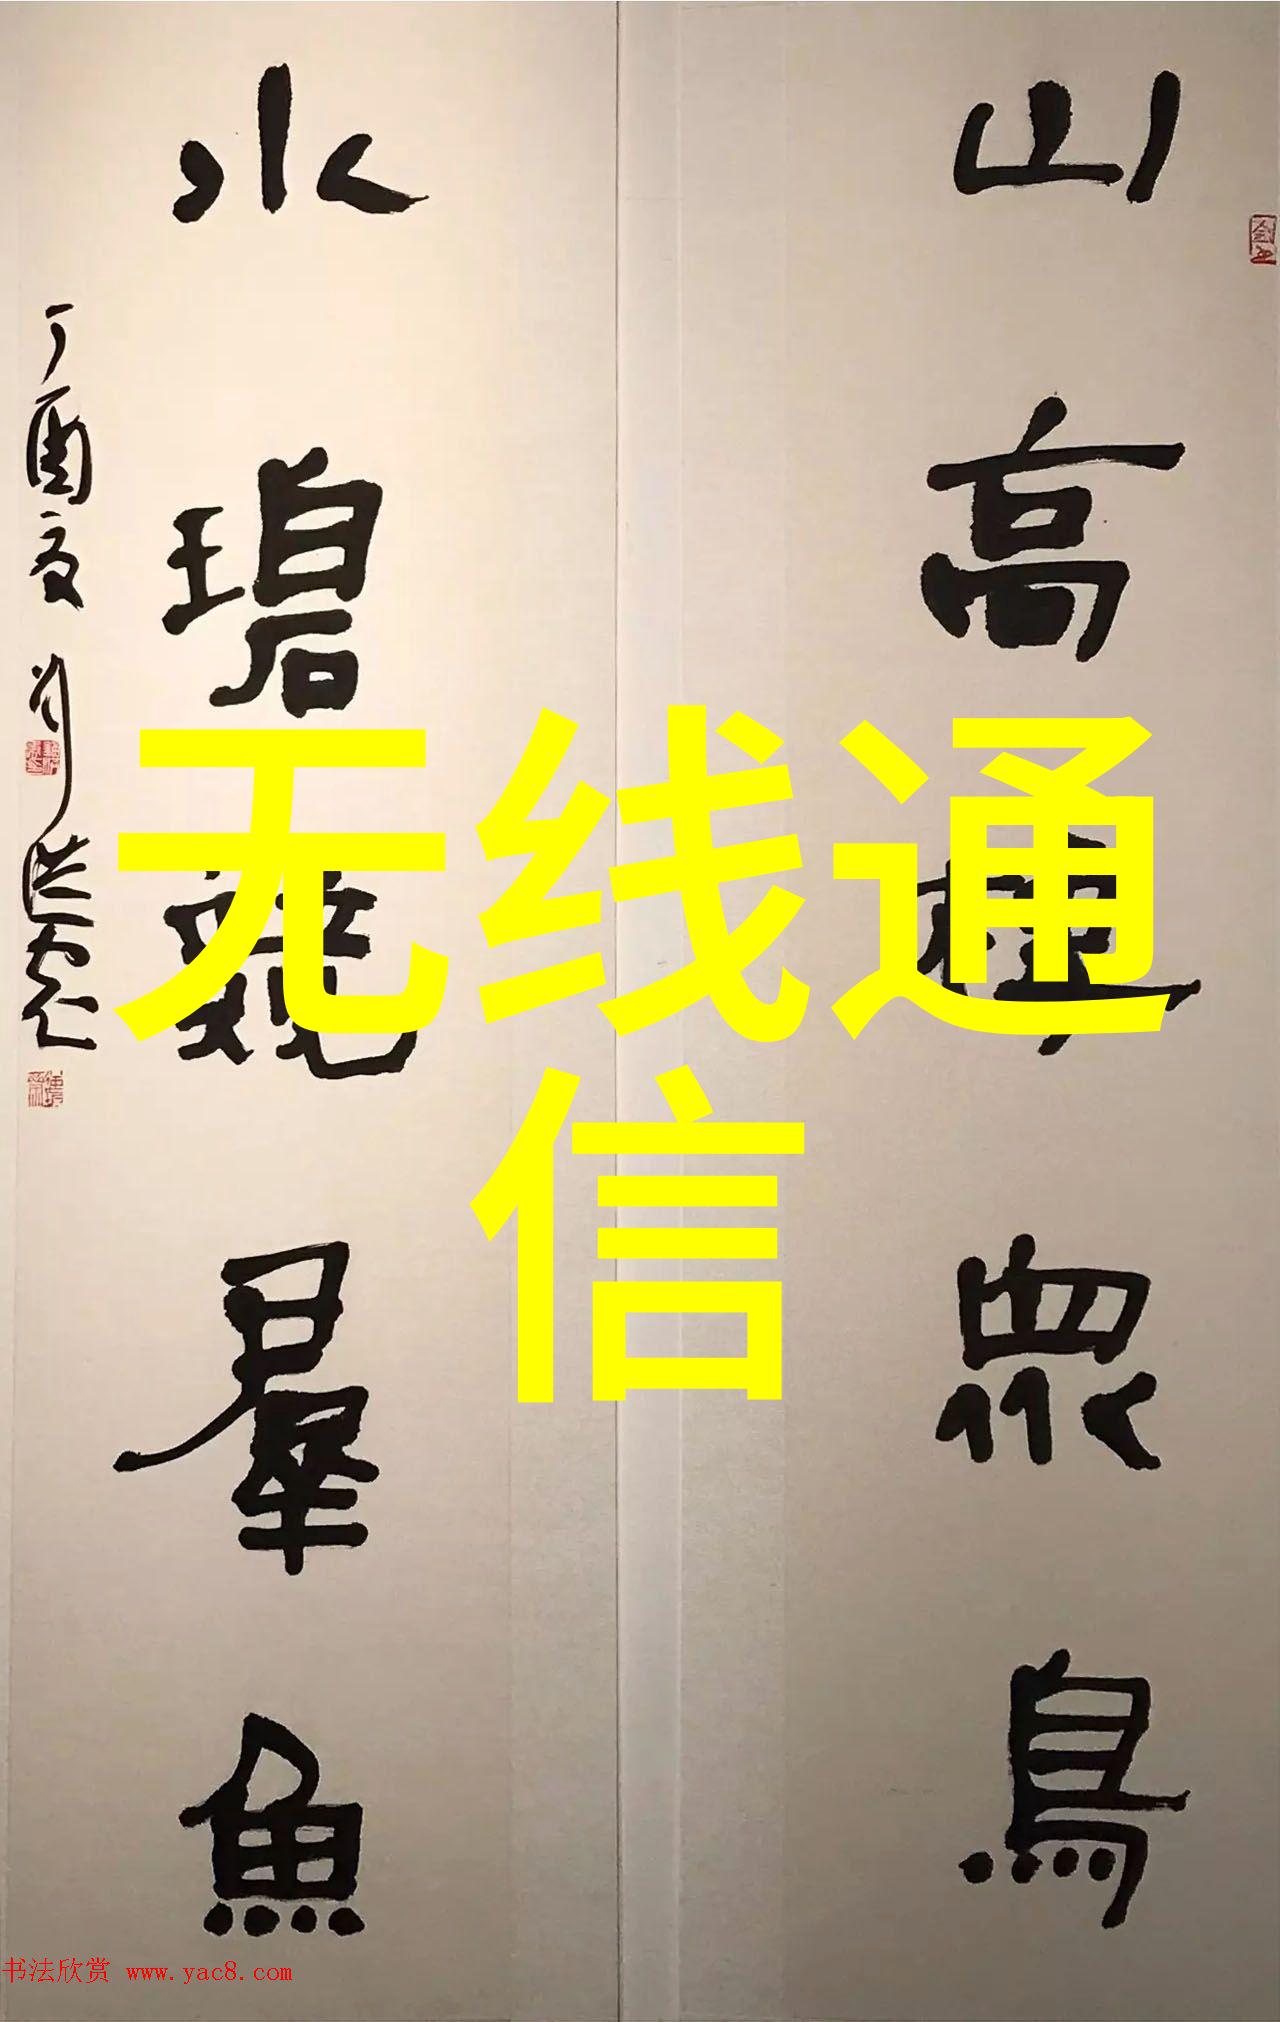 山高棲眾鳥
水碧競羣魚
丁酉夏
无线通
信
书法欣赏 www.yac8.com